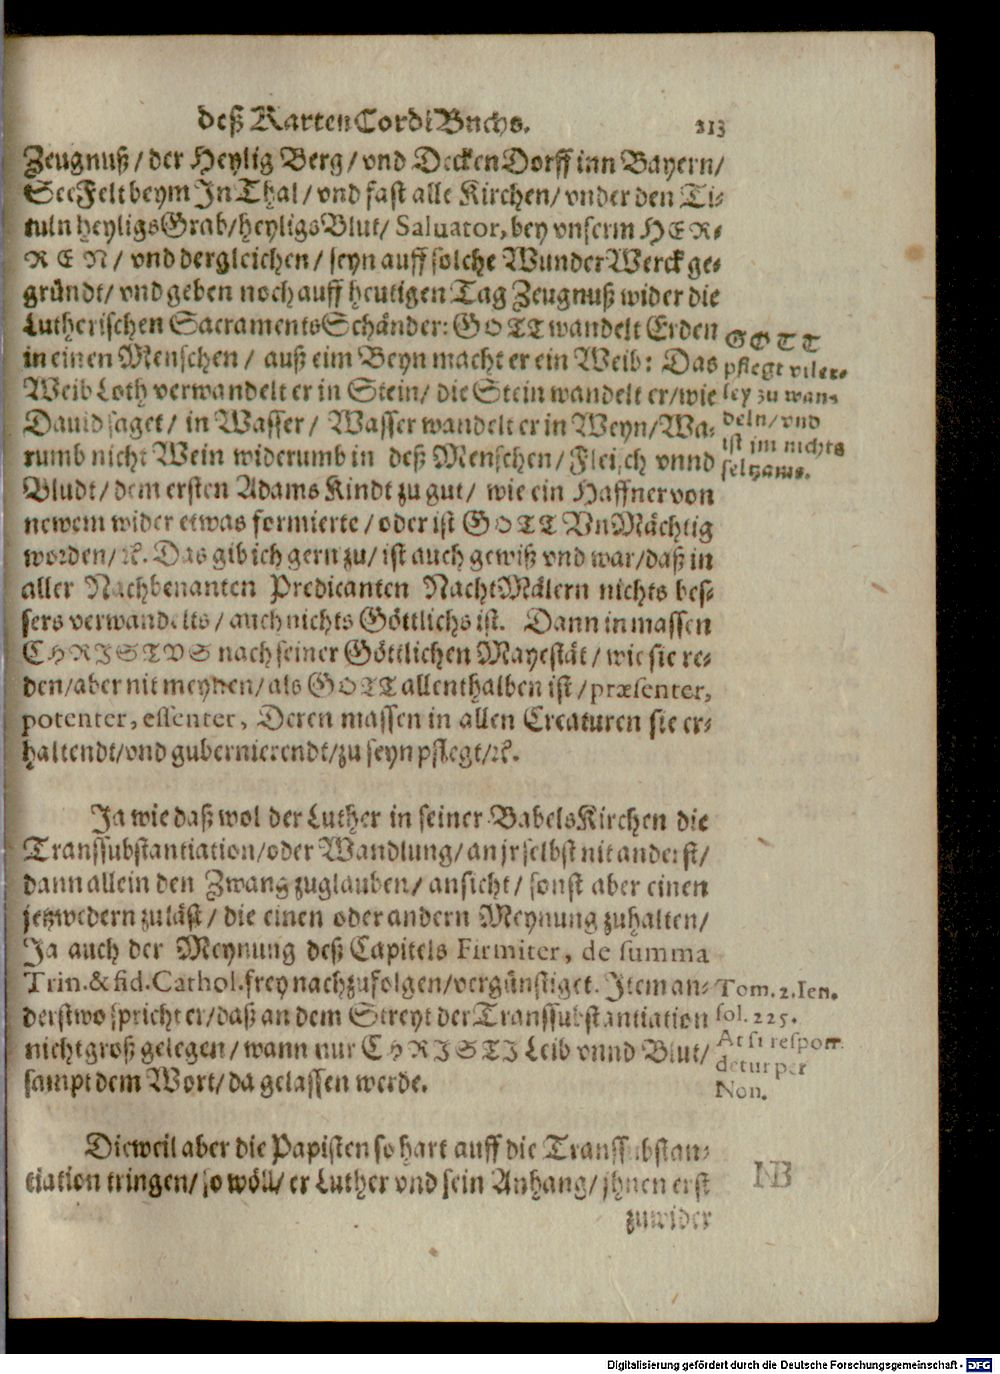 deß KartenCordiBuchs. 213
Zeugnuß/ der Heylig Berg/ vnd DeckenDorff inn Bayern/
SeeFelt beym JnThal/ vnd fast alle Kirchen/ vnder den Ti-
tuln heyligsGrab/heyligsBlut/ Saluator, bey vnserm HER-
REN/ vnd dergleichen/ seyn auff solche WunderWerck ge-
gründt/ vnd geben noch auff heutigen Tag Zeugnuß wider die
Lutherischen SacramentsSchänder: GOTT wandelt Erden
in einen Menschen/ auß eim Beyn macht er ein Weib: Das
Weib Loth verwandelt er in Stein/ die Stein wandelt er/wie
Dauid saget/ in Wasser/ Wasser wandelt er in Weyn/Wa-
rumb nicht Wein widerumb in deß Menschen/ Fleisch vnnd
Bludt/ dem ersten Adams Kindt zu gut/ wie ein Haffner von
newem wider etwas formierte/ oder ist GOTT VnMächtig
worden/ꝛc. Das gib ich gern zu/ ist auch gewiß vnd war/daß in
aller Nachbenanten Predicanten NachtMälern nichts bes-
sers verwandelts/ auch nichts Göttlichs ist. Dann in massen
CHRISTVS nach seiner Göttlichen Mayestät/ wie sie re-
den/aber nit meynen/ als GOTT allenthalben ist/ præsenter,
potenter, essenter, Deren massen in allen Creaturen sie er-
haltendt/vnd gubernierendt/zu seyn pflegt/ꝛc.
GOTT
pflegt viler-
ley zu wan-
deln/ vnd
ist jm nichts
seltzams.
Ja wie daß wol der Luther in seiner BabelsKirchen die
Transsubstantiation/oder Wandlung/ an jr selbst nit anderst/
dann allein den Zwang zuglauben/ ansicht/ sonst aber einen
jetzwedern zuläst/ die einen oder andern Meynung zuhalten/
Ja auch der Meynung deß Capitels Firmiter, de summa
Trin. & fid. Cathol. frey nachzufolgen/vergünstiget. Jtem an-
derstwo spricht er/daß an dem Streyt der Transsubstantiation
nicht groß gelegen/ wann nur CHRISTI Leib vnnd Blut/
sampt dem Wort/ da gelassen werde.
Tom. 2. Ien.
fol. 225.
At si respon-
detur per
Non.
Dieweil aber die Papisten so hart auff die Transsubstan-
tiation tringen/ so wöll/ er Luther vnd sein Anhang/ jhnen erst
NB
zuwider
Digitalisierung gefördert durch die Deutsche Forschungsgemeinschaft - DFG